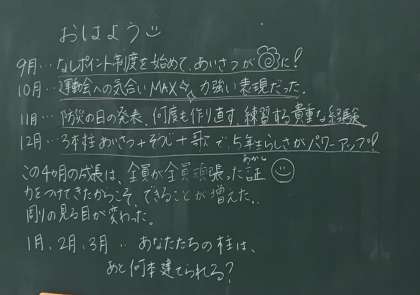 おはよう
9月…なしポイント制度を始めて、あいさつが◎に!
10月…運動会への気合いMAX☆力強い表現だった。
11月…防災の日の発表、何度も作り直す、練習する貴重な経験
12月…3本柱あいさつ+そうじ+歌で、5年生らしさがパワーアップ!
この4か月の成長は、全員が全員頑張った証(あかし)
力をつけてきたからこそ、できることが増えた。
周りの見る目が変わった。
1月、2月、3月…あなたたちの柱は、
あと何本建てられる?